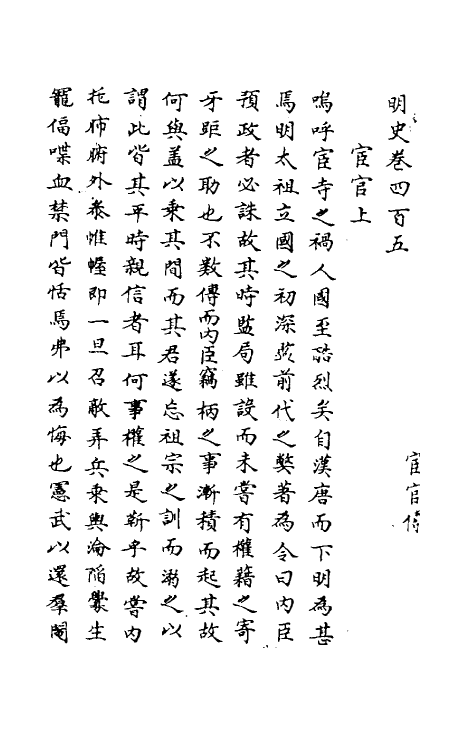 明史卷四百五
宦官傳
宦官上
嗚呼宦寺之禍人國至酷烈矣自漢唐而下明為甚
焉明太祖立國之初深鑒前代之弊著為令曰內臣
預政者必誅故其時監局雖設而未嘗有權籍之寄
牙距之助也不數傳而內臣竊柄之事漸積而起其故
何與蓋以乘其間而其君遂忘祖宗之訓而溺之以
謂此皆其平時親信者耳何事權之是靳乎故嘗內
托肺腑外參帷幄即一旦召敵弄兵乘輿淪陷釁生
寵偪喋血禁門皆恬焉弗以為悔也憲武以還羣閹